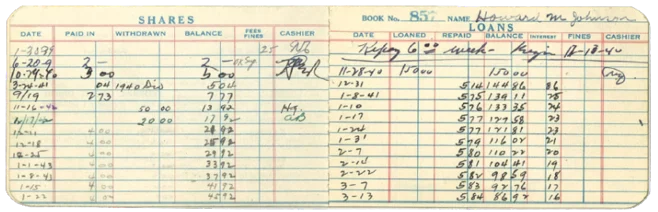 SHARES
DATE PAID IN WITHDRAWN BALANCE FEES FINES CASHIER
25
6-20-9 2- 2-
10-29-40 3 00 5 00
3-24-41 04 1940 Div 5 04
9/19 2 73 7 77
11-16-42 50 00 13 92
20 00 17 92
4 00 92
12-18 4 00 25 92
12-25 4 00 29 92
1-1-43 4 00 33 92
1-8-43 4 00 37 92
1-15 4 00 41 92
1-22 4 00 45 92
BOOK No. 857 NAME Howard M Johnson
LOANS
DATE LOANED REPAID BALANCE INTEREST FINES CASHIER
Repay 6 00 week - Begin 12-18-40
11-28-40 150 00 150 00
12-31 5 14 144 86 86
1-8-41 5 75 139 11 25
1-10 5 76 133 35 24
1-17 5 77 127 58 23
1-24 5 77 121 81 23
1-31 5 79 116 02 21
2-7 5 80 110 22 20
2-14 5 81 104 41 19
2-22 5 82 98 59 18
3-7 5 83 92 76 17
3-13 5 84 86 92 16